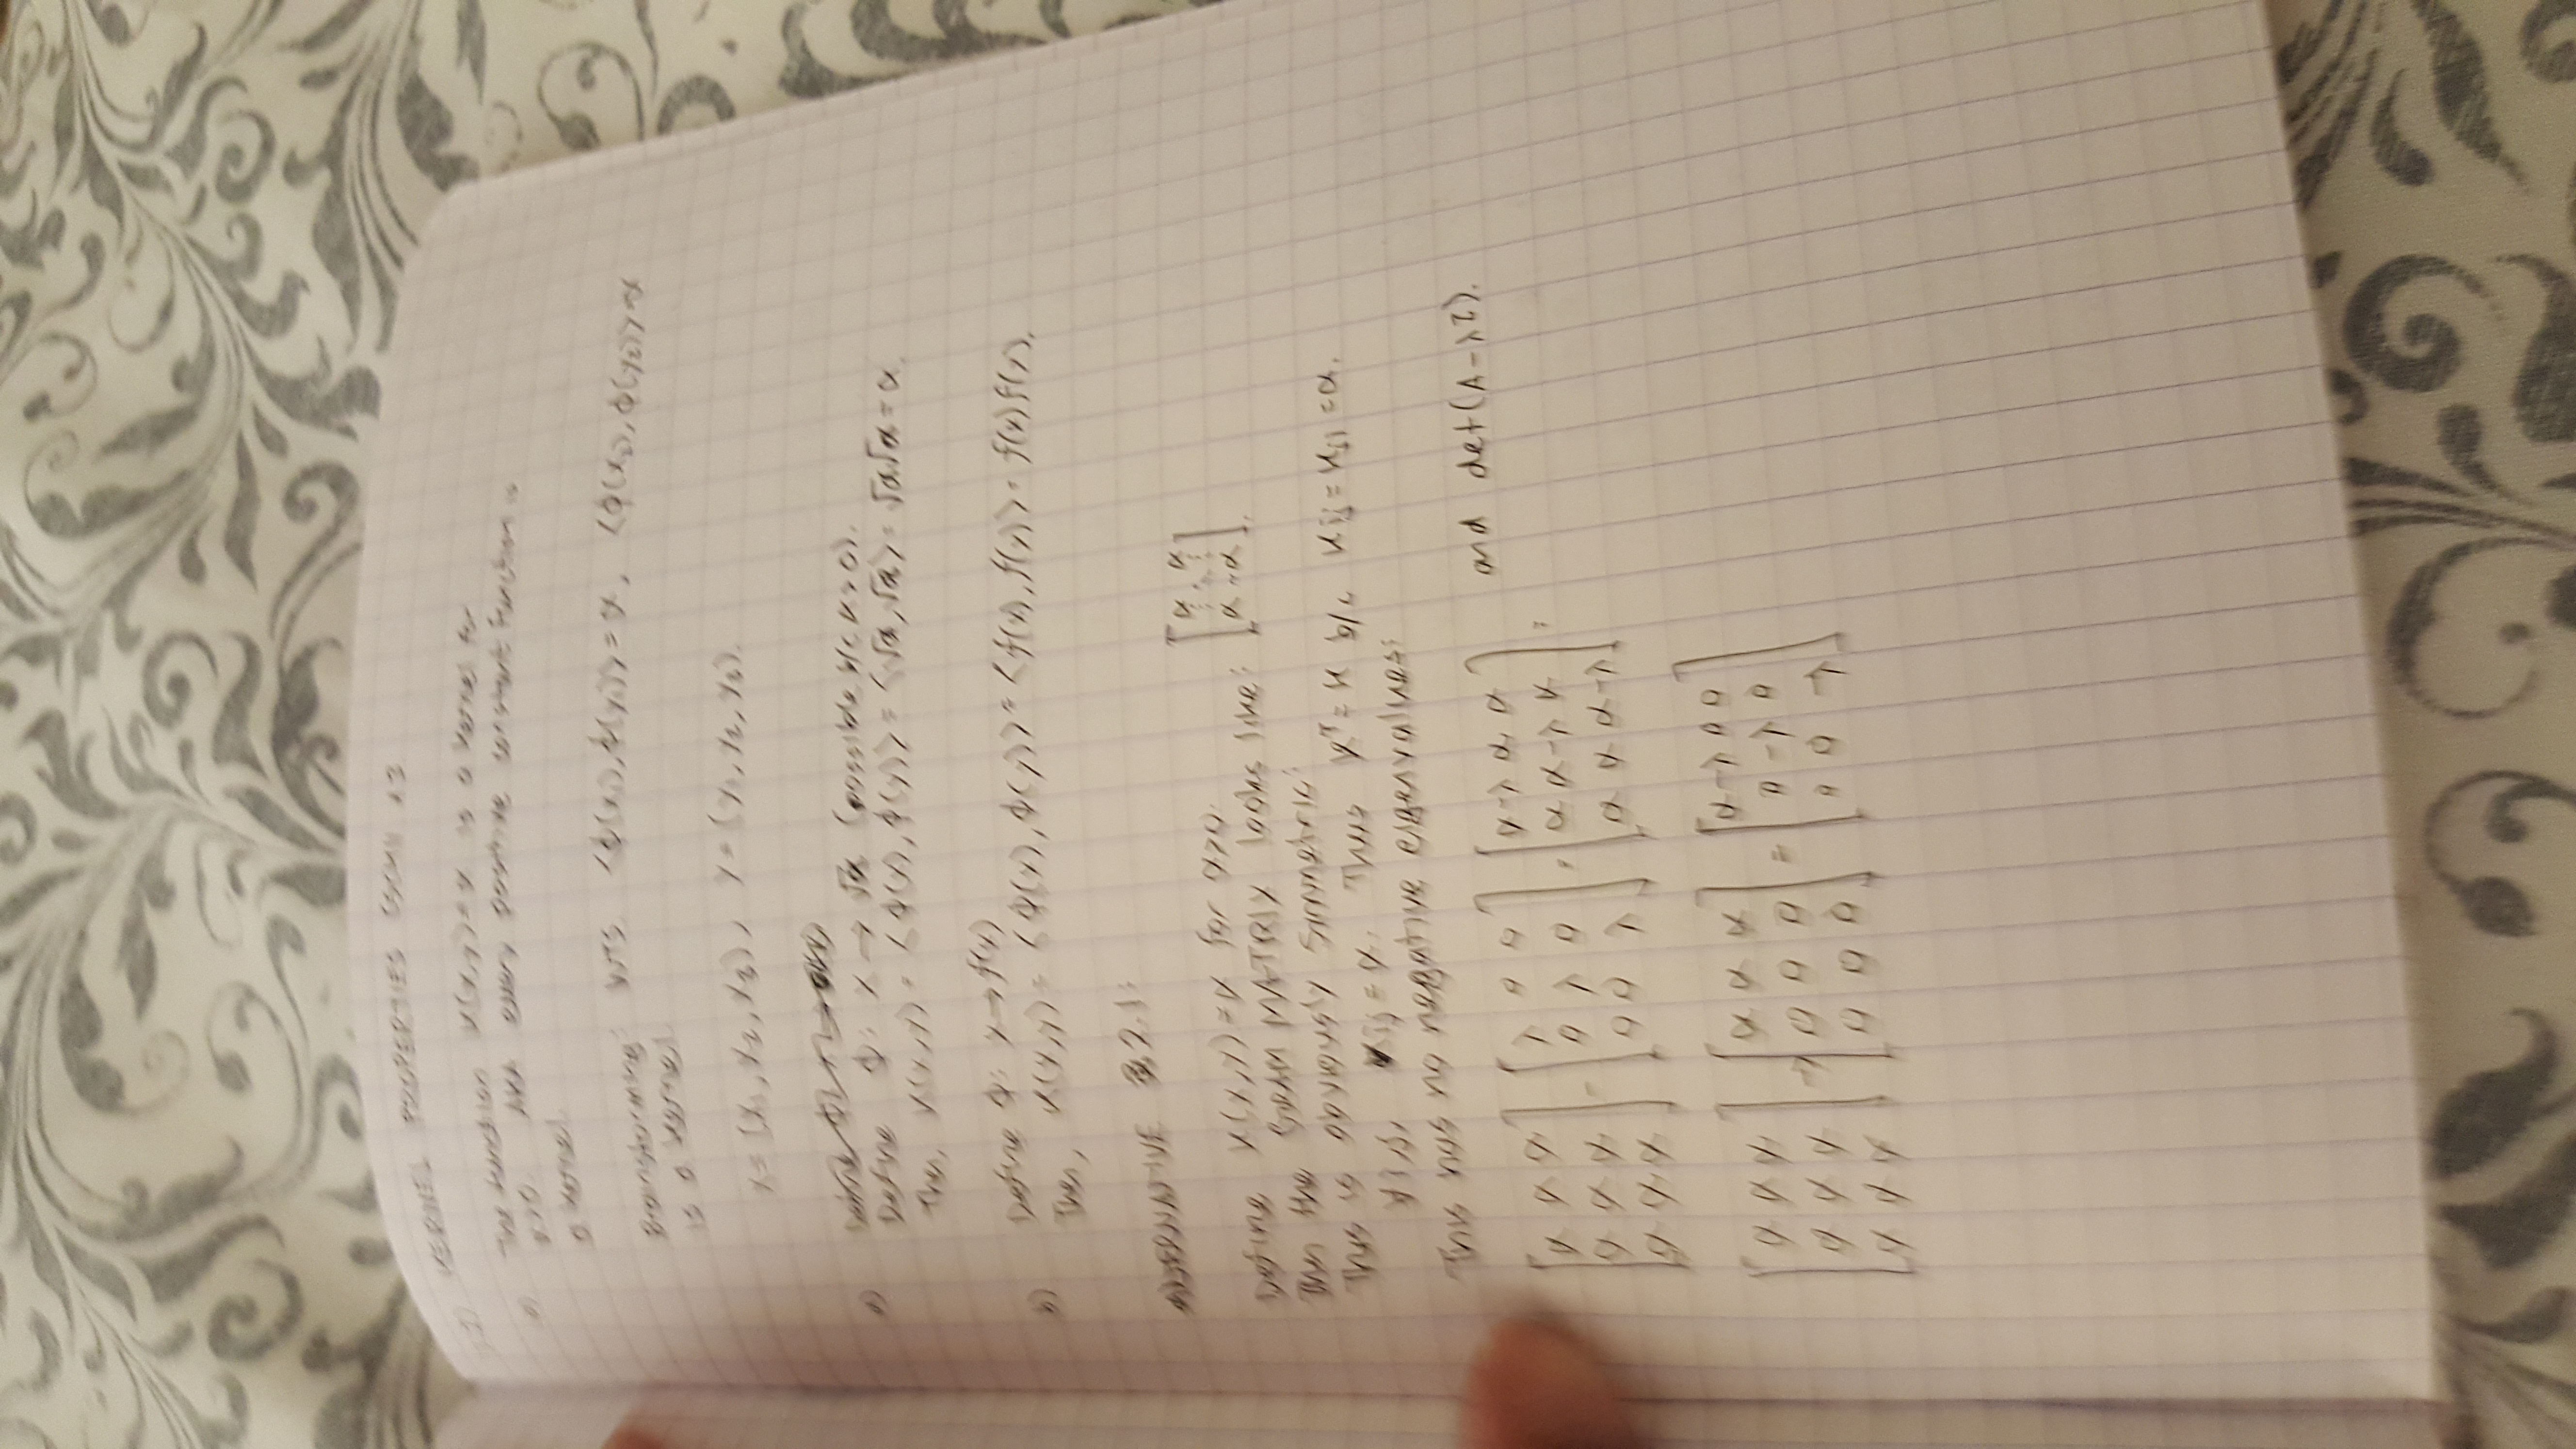 3.2) KERNEL PROPERTIES
a) The function K(x,y)=α is a kernel for
α>0. AKA every positive constant function is
a kernel.
Brainstorming: WTS <ϕ(x₁),ϕ(y₁)>=α, <ϕ(x₂),ϕ(y₂)>=α
is a kernel.
x=(x₁,x₂,x₃), y=(y₁,y₂,y₃).
a) Define ϕ: x→√α (possible b/c α>0).
Then, K(x,y)=<ϕ(x),ϕ(y)>=<√α,√α>=√α√α=α.
b) Define ϕ: x→f(x)
Then, K(x,y)=<ϕ(x),ϕ(y)>=<f(x),f(y)>=f(x)f(y).
ALTERNATIVE 3.2.1:
Define K(x,y)=α for α>0.
Then the GRAM MATRIX looks like: [α .. α
⋮ ⋱ ⋮
α .. α].
This is obviously symmetric:
∀i,j, Kij=α. Thus Kᵀ=K b/c Kij=Kji=α.
This has no negative eigenvalues:
[α α α] - [λ 0 0] = [α-λ α α] = and det(A-λI).
[α α α] [0 λ 0] [α α-λ α]
[α α α] [0 0 λ] [α α α-λ]
[α α α] → [α α α] = [α-λ 0 0]
[α α α] [0 0 0] [0 -λ 0]
[α α α] [0 0 0] [0 0 -λ]